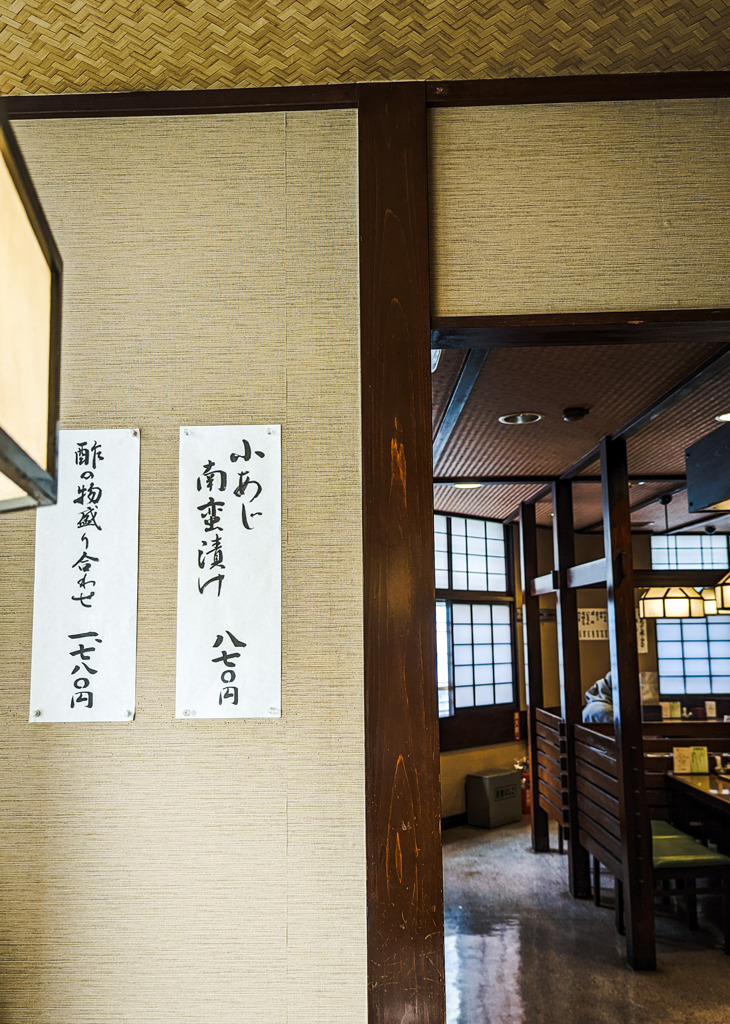 小あじ
南蛮漬け
八七〇円
酢の物盛り合わせ
一、七八〇円